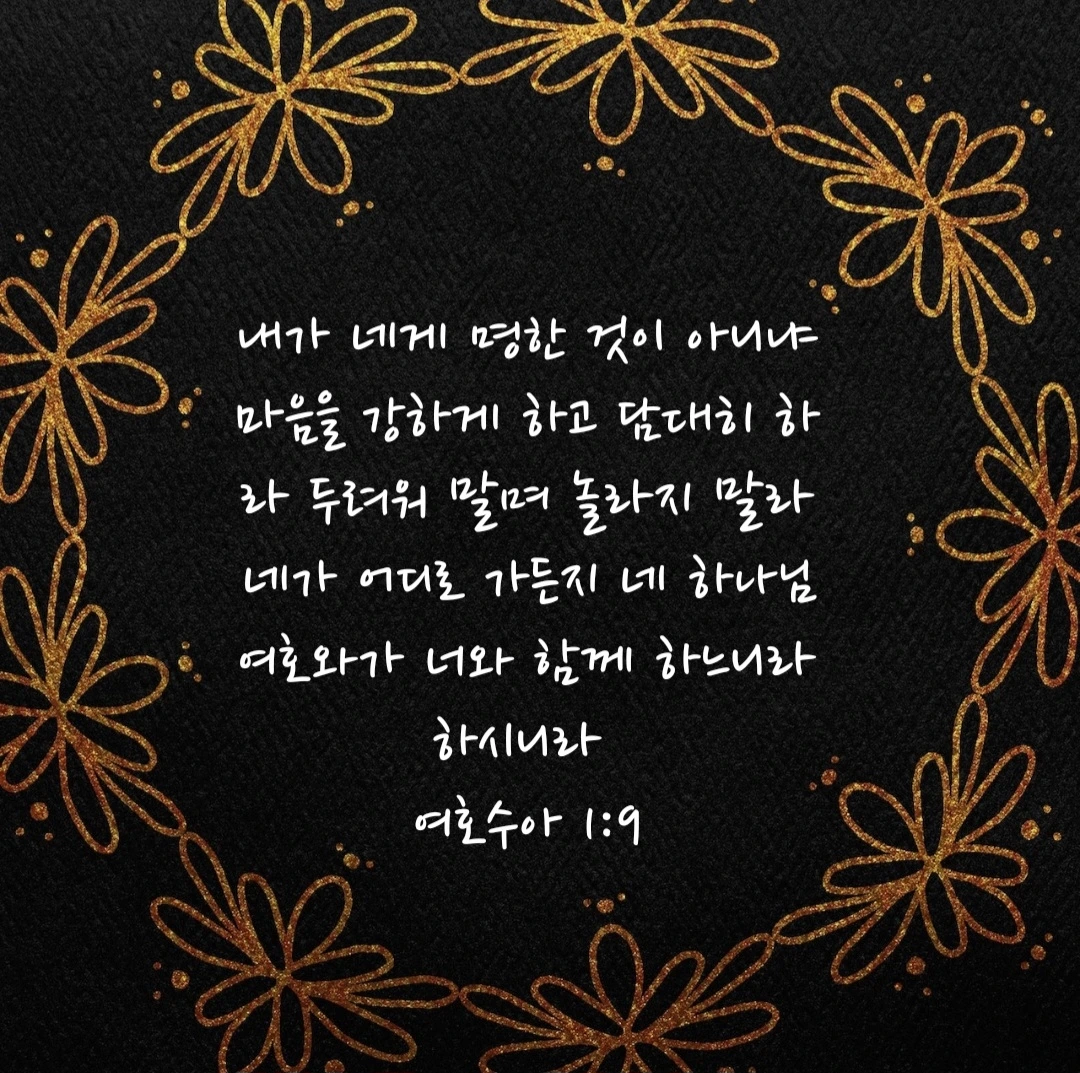 내가 네게 명한 것이 아니냐
마음을 강하게 하고 담대히 하
라 두려워 말며 놀라지 말라
네가 어디로 가든지 네 하나님
여호와가 너와 함께 하느니라
하시니라
여호수아 1:9